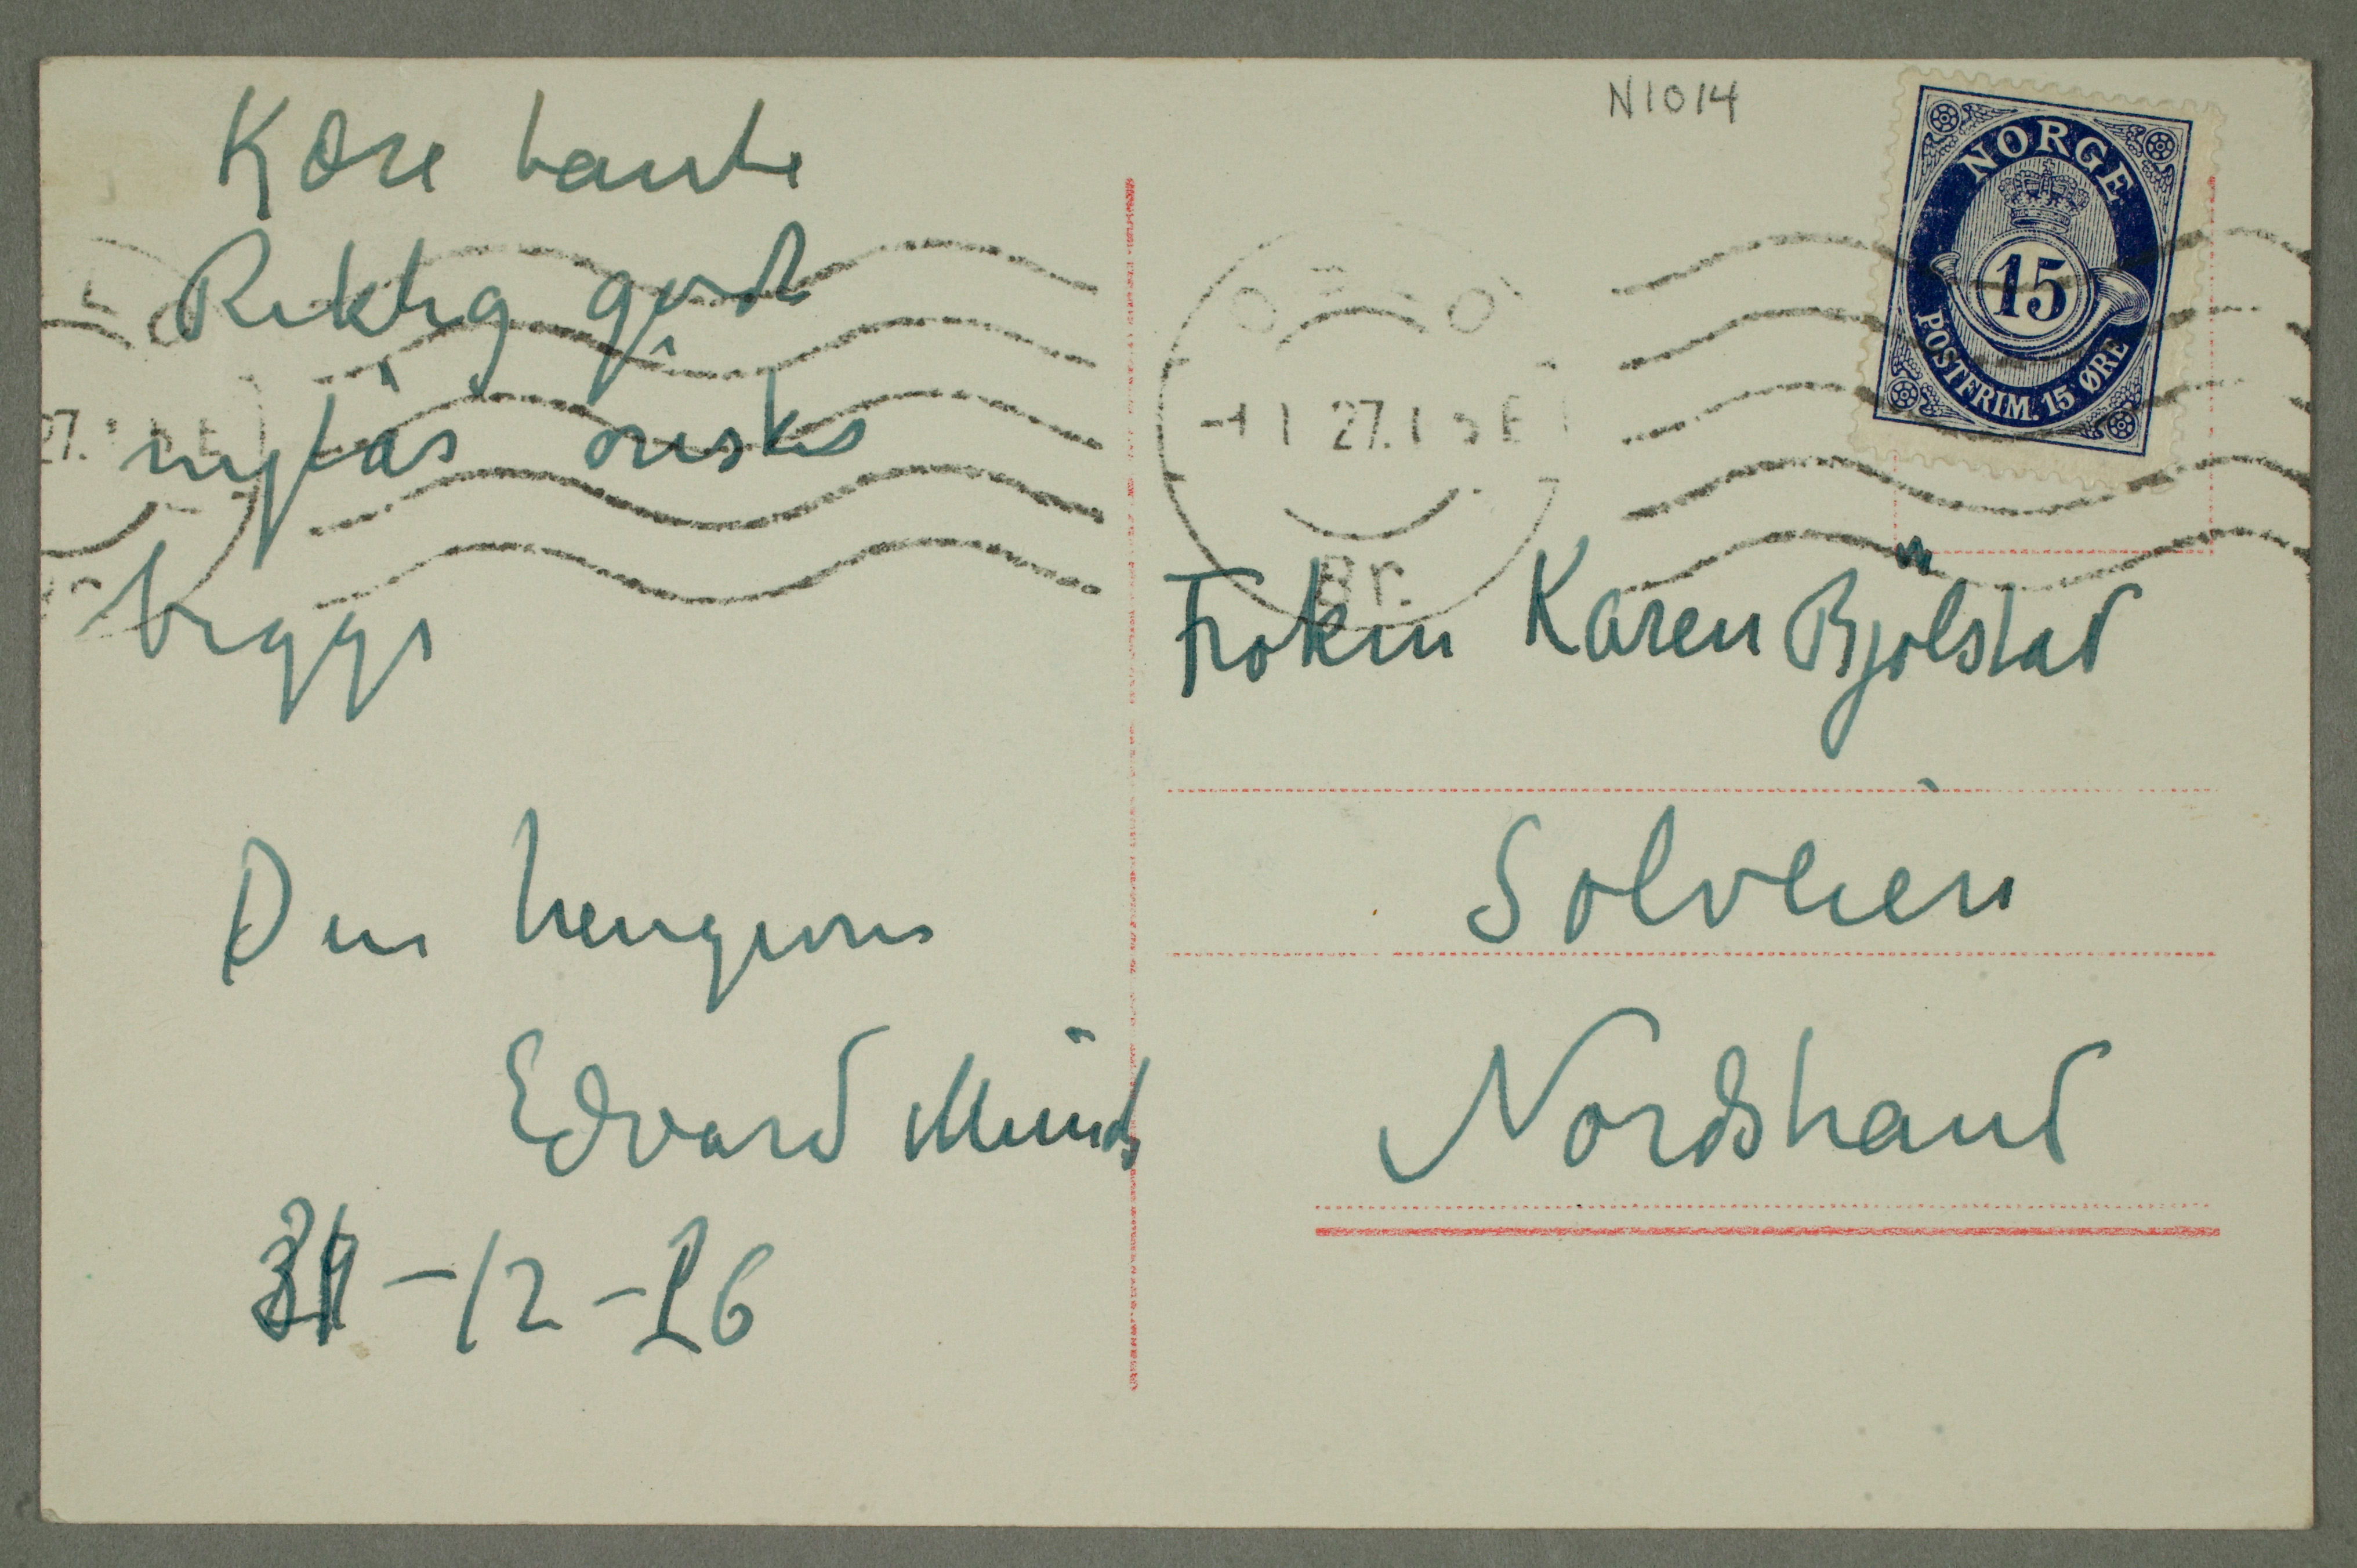 Kære tante
Riktig godt
nytårs ønskes
begge
Din hengivne
Edvard Munch
31-12-26
N1014
NORGE
15
POSTFRIM. 15 ØRE
OSLO
-1 1 27.1
Br.
Frøken Karen Bjølstad
Solveien
Nordstrand